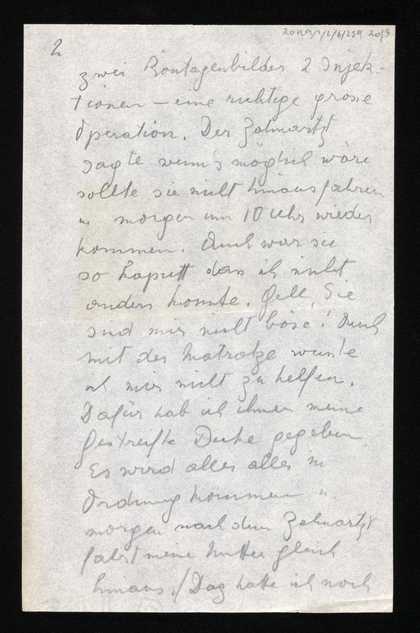 2
zwei Röntagenbilder 2 Injek-
tionen – eine richtige grose
Operation. Der Zahnartzt
sagte wenn's möglich wäre
sollte sie nicht hinausfahren
u morgen um 10 Uhr wieder
kommen. Auch war sie
so kaputt das ich nicht
anders konnte. Gell, Sie
sind mir nicht böse! Auch
mit der Matratze wuste
ich mir nicht zu helfen.
Dafür hab ich ihnen meine
gestreifte Decke gegeben.
Es wird alles alles in
Ordnung kommen u
morgen nach dem Zahnartzt
fährt meine Mutter gleich
hinaus. / hatte ich noch